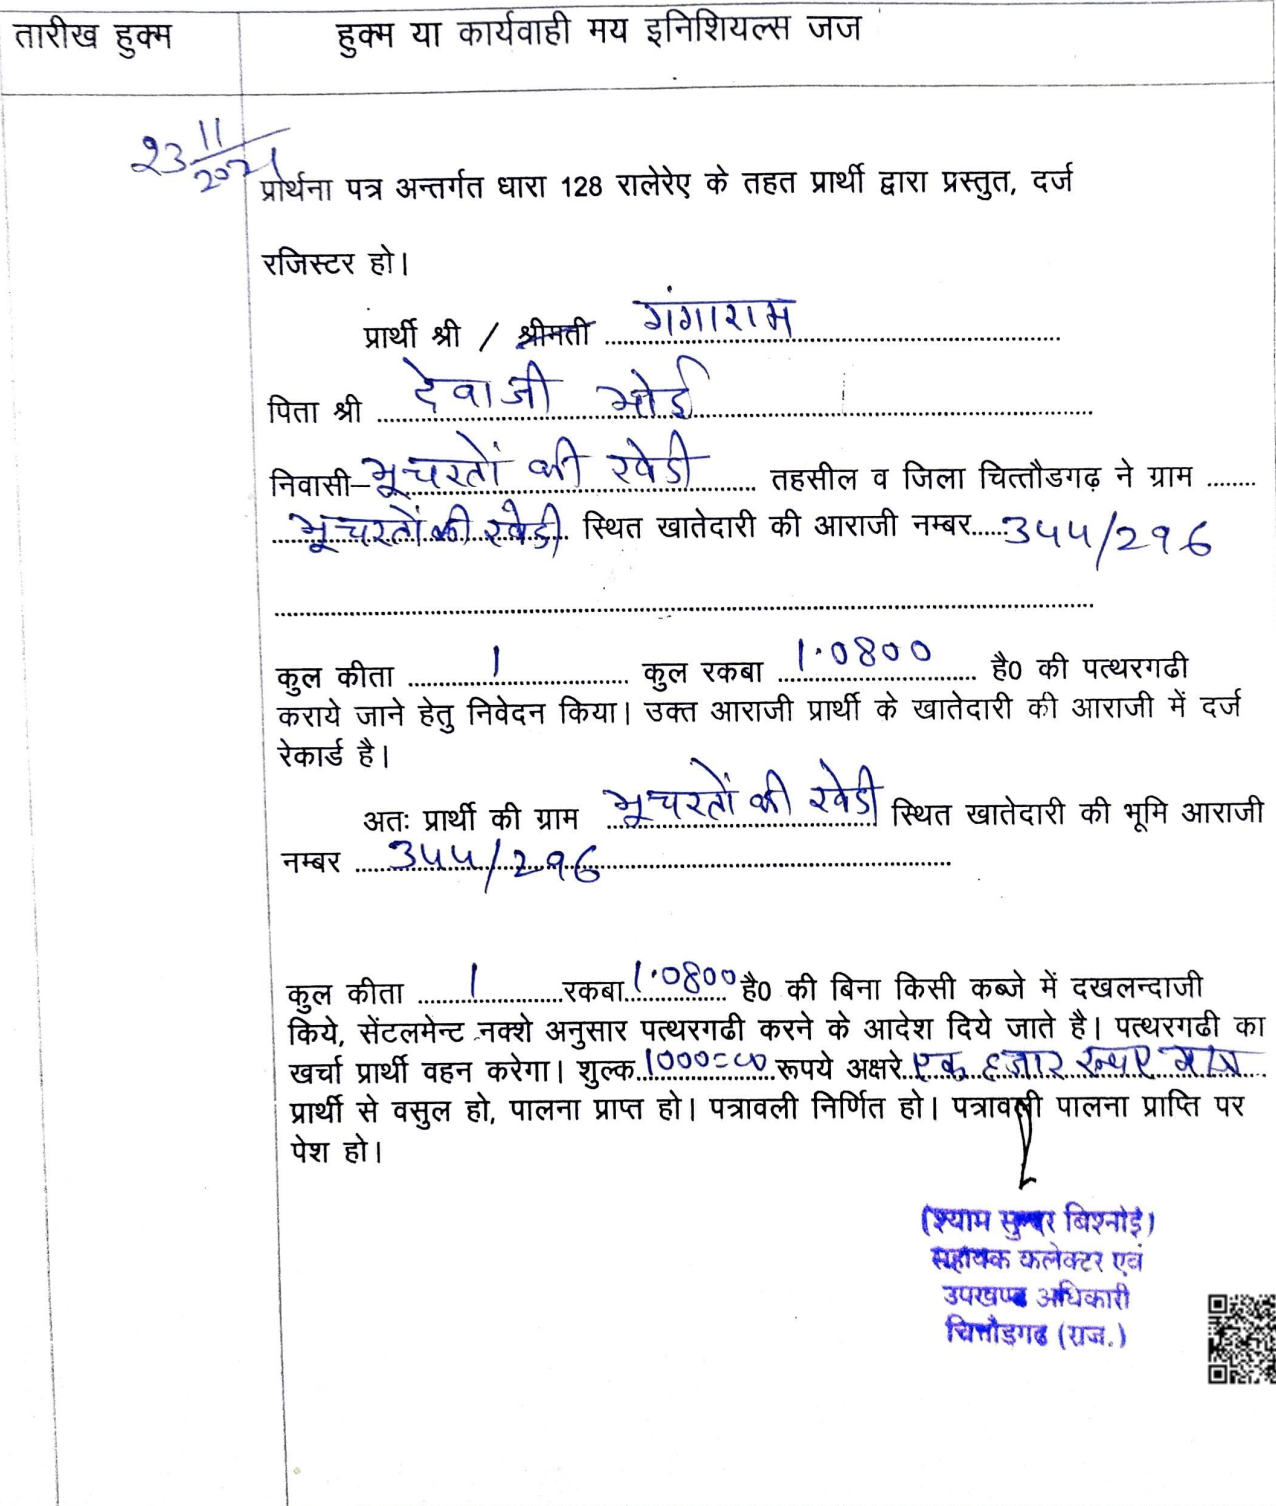 तारीख हुक्म	हुक्म या कार्यवाही मय इनिशियल्स जज
23 11/2021
प्रार्थना पत्र अन्तर्गत धारा 128 रालेरेए के तहत प्रार्थी द्वारा प्रस्तुत, दर्ज
रजिस्टर हो।
प्रार्थी श्री / श्रीमती गंगाराम
पिता श्री देवाजी भोई
निवासी– भूचरतों की खेडी तहसील व जिला चित्तौडगढ़ ने ग्राम
भूचरतों की खेडी स्थित खातेदारी की आराजी नम्बर 344/296
कुल कीता 1 कुल रकबा 1.0800 है0 की पत्थरगढी
कराये जाने हेतु निवेदन किया। उक्त आराजी प्रार्थी के खातेदारी की आराजी में दर्ज
रेकार्ड है।
अतः प्रार्थी की ग्राम भूचरतों की खेडी स्थित खातेदारी की भूमि आराजी
नम्बर 344/296
कुल कीता 1 रकबा 1.0800 है0 की बिना किसी कब्जे में दखलन्दाजी
किये, सेंटलमेन्ट नक्शे अनुसार पत्थरगढी करने के आदेश दिये जाते है। पत्थरगढी का
खर्चा प्रार्थी वहन करेगा। शुल्क 1000=00 रूपये अक्षरे एक हजार रूपए मात्र
प्रार्थी से वसुल हो, पालना प्राप्त हो। पत्रावली निर्णित हो। पत्रावली पालना प्राप्ति पर
पेश हो।
(श्याम सुन्दर बिश्नोई)
सहायक कलेक्टर एवं
उपखण्ड अधिकारी
चित्तौड़गढ (राज.)